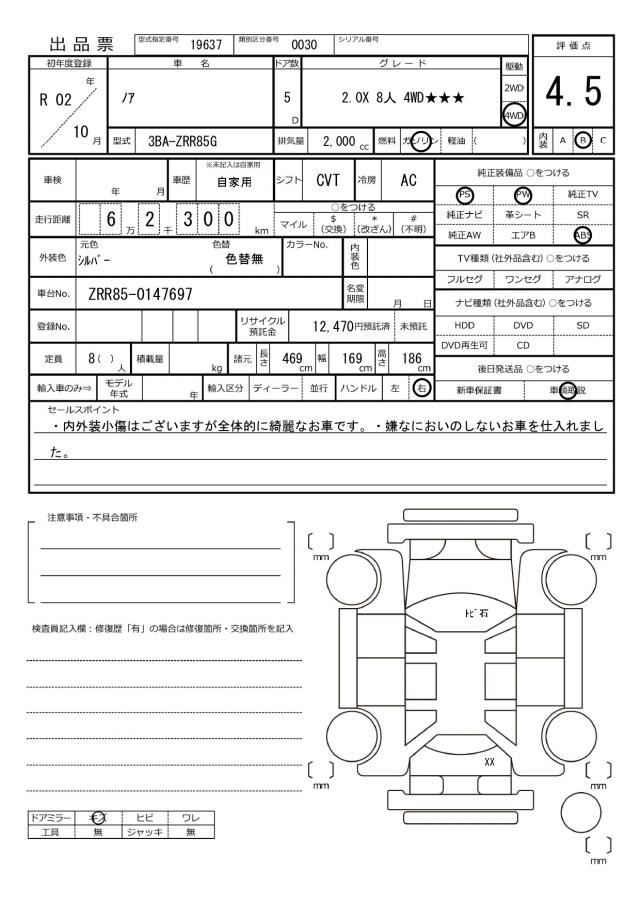 出品票 型式指定番号 19637 類別区分番号 0030 シリアル番号
評価点
4.5
初年度登録 車名 ドア数 グレード 駆動
R 02 年 10 月
ノア
5 D
2.0X 8人 4WD★★★
2WD
4WD
型式 3BA-ZRR85G 排気量 2,000 cc 燃料 ガソリン 軽油 ( )
内装 A B C
車検 年 月 車歴 ※未記入は自家用 自家用 シフト CVT 冷房 AC
走行距離 6 万 2 千 300 km
○をつける
マイル $(交換) *(改ざん) #(不明)
外装色 元色 シルバー 色替 (色替無) カラーNo. 内装色
車台No. ZRR85-0147697 名変期限 月 日
登録No. リサイクル預託金 12,470円預託済 未預託
定員 8( )人 積載量 kg 諸元 長さ 469cm 幅 169cm 高さ 186cm
輸入車のみ⇒ モデル年式 年 輸入区分 ディーラー 並行 ハンドル 左 右
純正装備品 ○をつける
PS PW 純正TV
純正ナビ 革シート SR
純正AW エアB ABS
TV種類 (社外品含む) ○をつける
フルセグ ワンセグ アナログ
ナビ種類 (社外品含む) ○をつける
HDD DVD SD
DVD再生可 CD
後日発送品 ○をつける
新車保証書 車輌取説
セールスポイント
・内外装小傷はございますが全体的に綺麗なお車です。・嫌なにおいのしないお車を仕入れまし
た。
注意事項・不具合箇所
検査員記入欄：修復歴「有」の場合は修復箇所・交換箇所を記入
〔 〕mm
〔 〕mm
トビ石
XX
〔 〕mm
〔 〕mm
〔 〕mm
ドアミラー キズ ヒビ ワレ
工具 無 ジャッキ 無